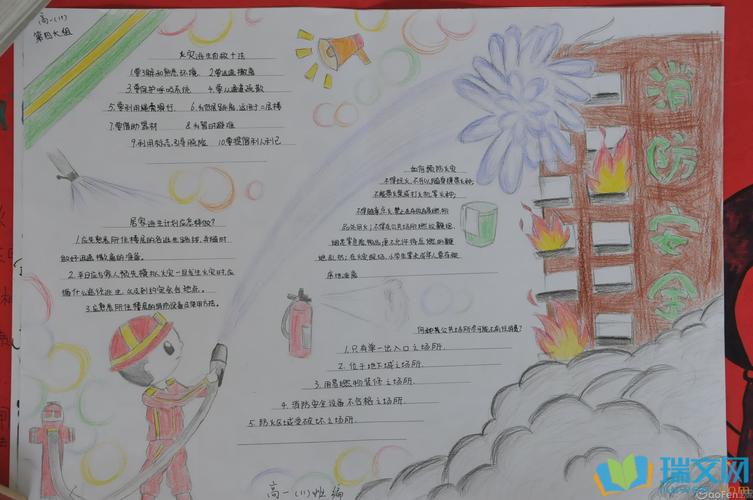 高一(11)
第四大组
火灾逃生自救十法
1.要了解和熟悉环境 2.要迅速撤离
3.要保护呼吸系统 4.要从通道疏散
5.要利用绳索滑行 6.为低层跳离,适用于二层楼
7.要借助器材 8.暂时避难
9.利用标志引导脱险 10.要提倡利人利己
居家逃生计划应怎样做?
1.应先熟悉所住楼层的各逃生路线,并随时
做好迅速撤离的准备。
2.平日应与家人预先模拟火灾一旦发生火灾时,应
循什么途径逃生,以及到约定会合地点。
3.应熟悉所住楼层的消防设备及使用方法。
如何预防火灾
不要玩火,不可以随身携带火种,
1.只有单一出入口之场所.
2.位于地下城之场所.
3.用易燃物装修之场所.
4.消防安全设备不合格之场所.
5.防火区域受破坏之场所.
消防安全
高一(11)班编
瑞文网